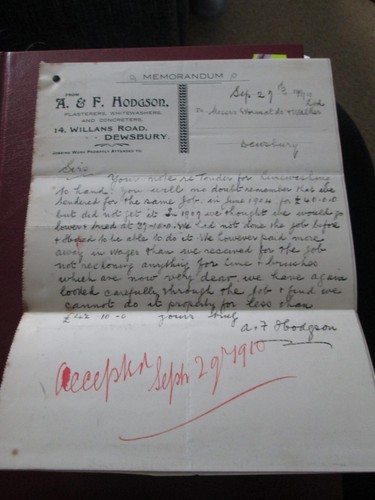 MEMORANDUM
FROM
A. & F. HODGSON,
PLASTERERS, WHITEWASHERS,
AND CONCRETERS,
14, WILLANS ROAD,
DEWSBURY.
JOBBING WORK PROMPTLY ATTENDED TO.
Sep 29th 1910
To Messrs Wormald & Walker Ltd
Dewsbury
Sirs
Your note re Tender for limewashing
to hand. you will no doubt remember that we
tendered for the same job in June 1904 for £40-0-0
but did not get it In 1909 we thought we would go
lower & tried at 39-10-0. We had not done the job before
& to be able to do it. We however paid more
away in wages than we received for the job
not reckoning anything for lime & brushes
which are now very dear. we have again
looked carefully through the job & find we
cannot do it properly for less than
£42-10-0 yours truly
A & F Hodgson
Accepted Sept 29th 1910